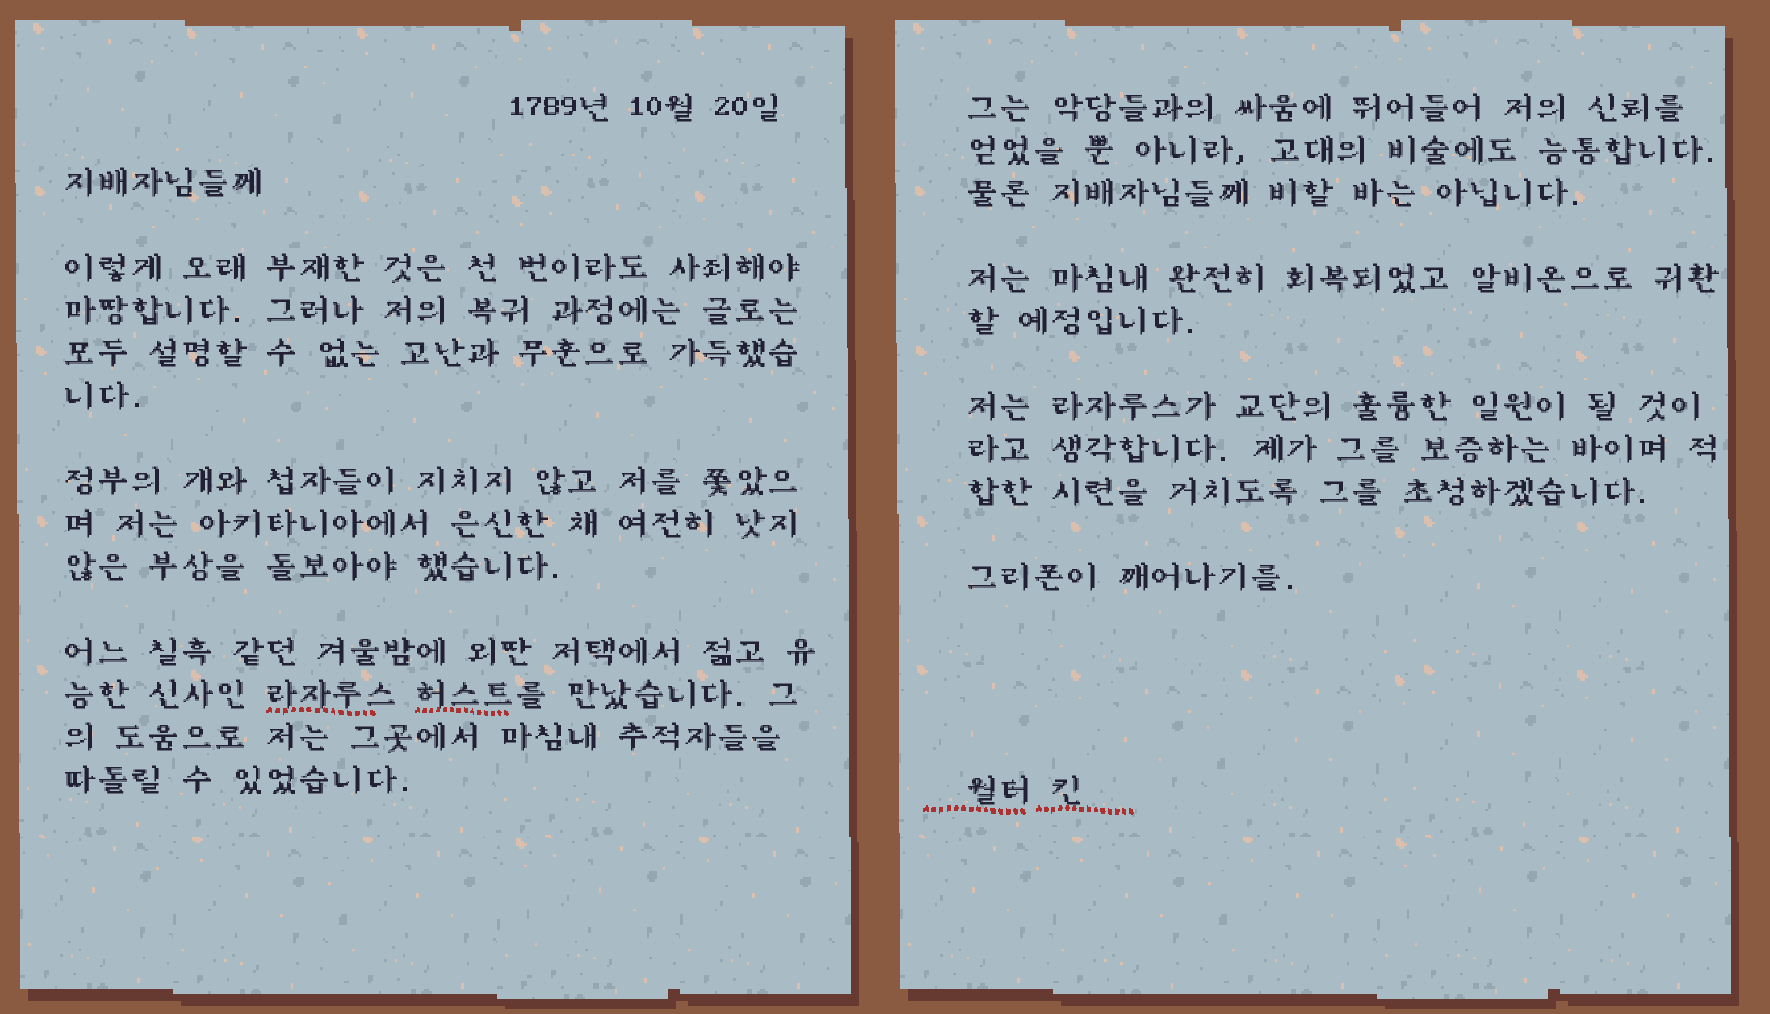 1789년 10월 20일
지배자님들께
이렇게 오래 부재한 것은 천 번이라도 사죄해야
마땅합니다. 그러나 저의 복귀 과정에는 글로는
모두 설명할 수 없는 고난과 무훈으로 가득했습
니다.
정부의 개와 첩자들이 지치지 않고 저를 쫓았으
며 저는 아키타니아에서 은신한 채 여전히 낫지
않은 부상을 돌보아야 했습니다.
어느 칠흑 같던 겨울밤에 외딴 저택에서 젊고 유
능한 신사인 라자루스 허스트를 만났습니다. 그
의 도움으로 저는 그곳에서 마침내 추적자들을
따돌릴 수 있었습니다.
그는 악당들과의 싸움에 뛰어들어 저의 신뢰를
얻었을 뿐 아니라, 고대의 비술에도 능통합니다.
물론 지배자님들께 비할 바는 아닙니다.
저는 마침내 완전히 회복되었고 알비온으로 귀환
할 예정입니다.
저는 라자루스가 교단의 훌륭한 일원이 될 것이
라고 생각합니다. 제가 그를 보증하는 바이며 적
합한 시련을 거치도록 그를 초청하겠습니다.
그리폰이 깨어나기를.
월터 킨